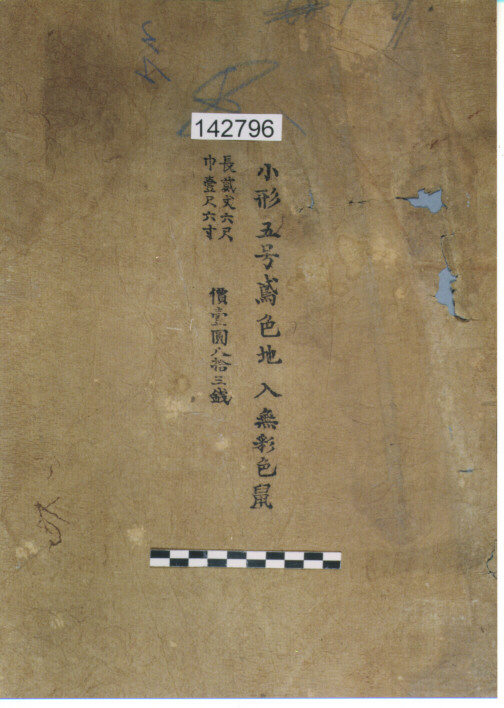 142796
小形五号鳶色地入無彩色鼠
長貮丈六尺
巾壹尺六寸
價壹圓八拾三銭